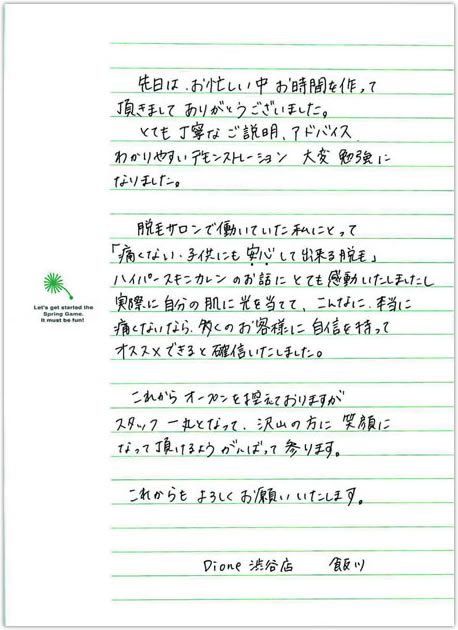 先日は、お忙しい中 お時間を作って
頂きまして ありがとうございました。
とても 丁寧な ご説明、アドバイス
わかりやすいデモンストレーション 大変 勉強に
なりました。
脱毛サロンで働いていた私にとって
「痛くない・子供にも 安心して出来る脱毛」
ハイパースキンカレン のお話に とても 感動いたしましたし
実際に 自分の肌に 光を当てて、こんなに、本当に
痛くないなら、多くの お客様に 自信を持って
オススメできると 確信いたしました。
これから オープンを控えておりますが
スタッフ 一丸となって、沢山の方に 笑顔に
なって頂けるよう がんばって 参ります。
これからも よろしく お願いいたします。
Dione 渋谷店 飯川
Let's get started the
Spring Game.
It must be fun!